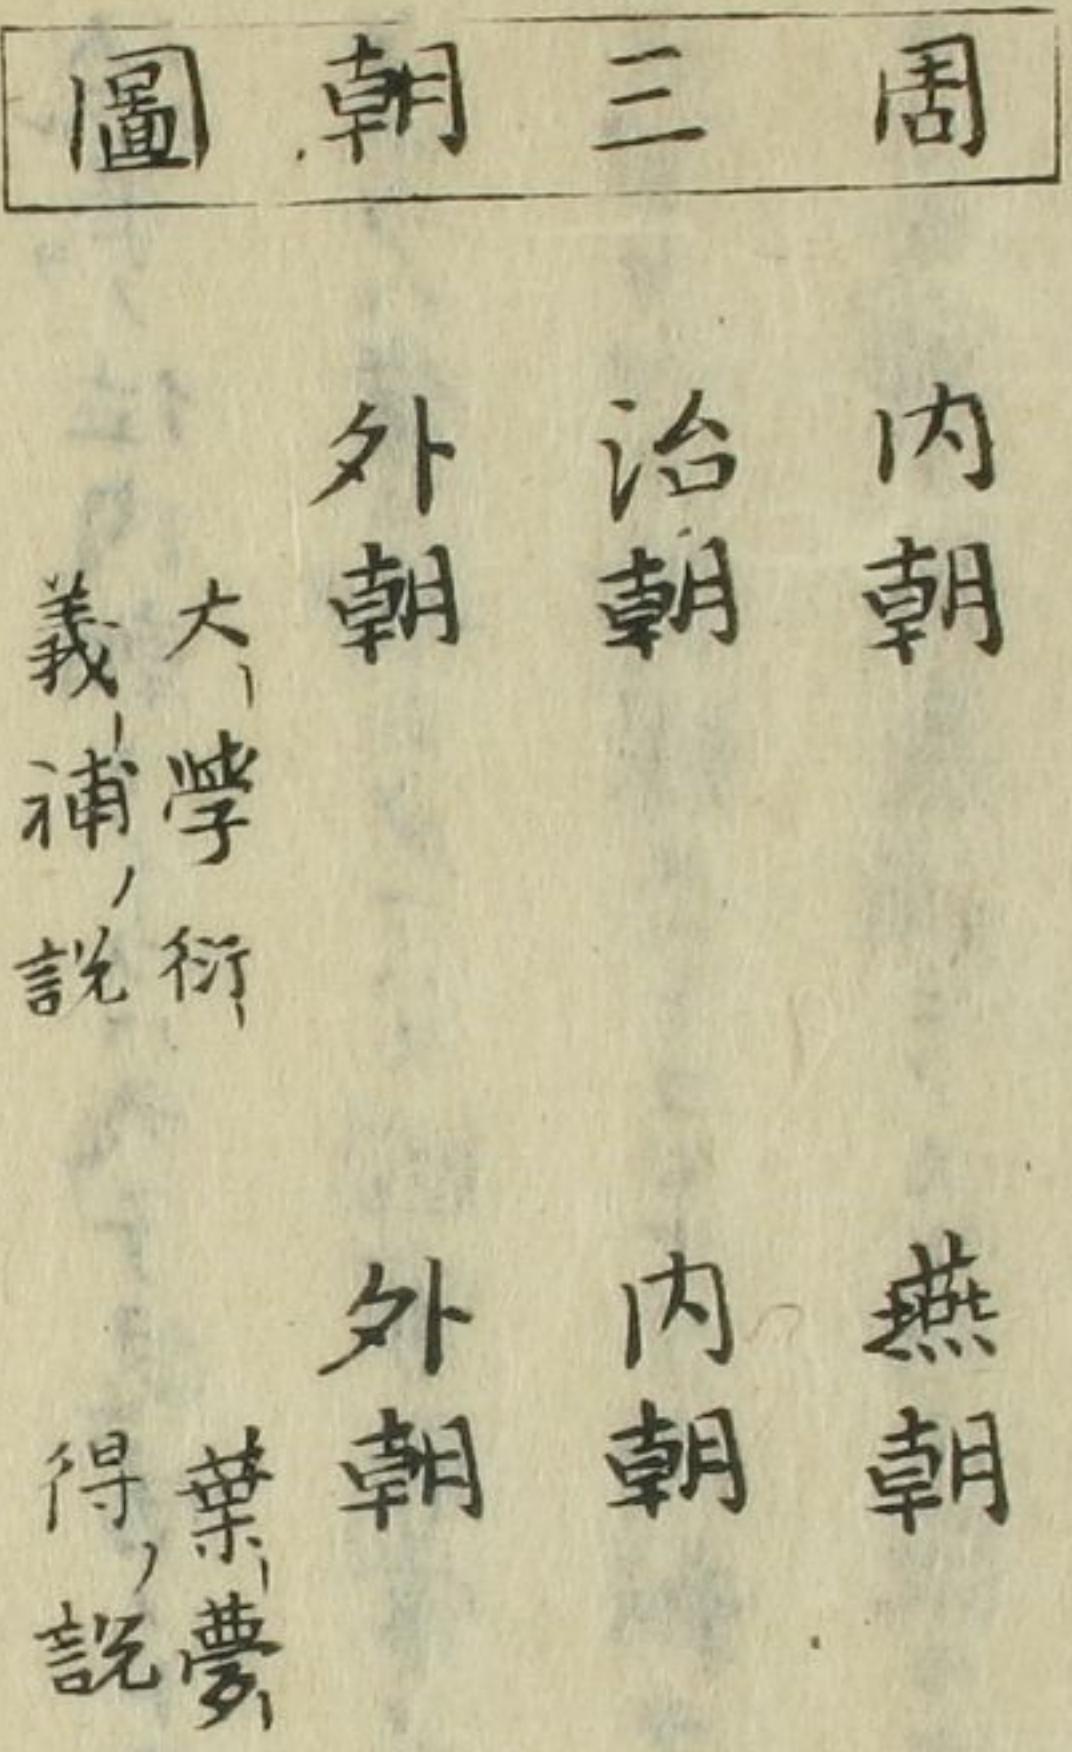 周三朝圖
内朝
治朝
外朝
大學衍
義補說
燕朝
内朝
外朝
葉夢
得說